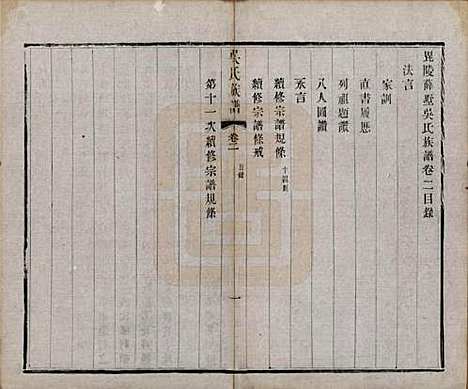 毘陵薛墅吳氏族譜卷二目錄
法言
家訓
直書履歷
列祖題讚
八人圖讚
永言
續修宗譜規條
續修宗譜條戒
吳氏族譜 卷二
一
第十一次續修宗譜規條